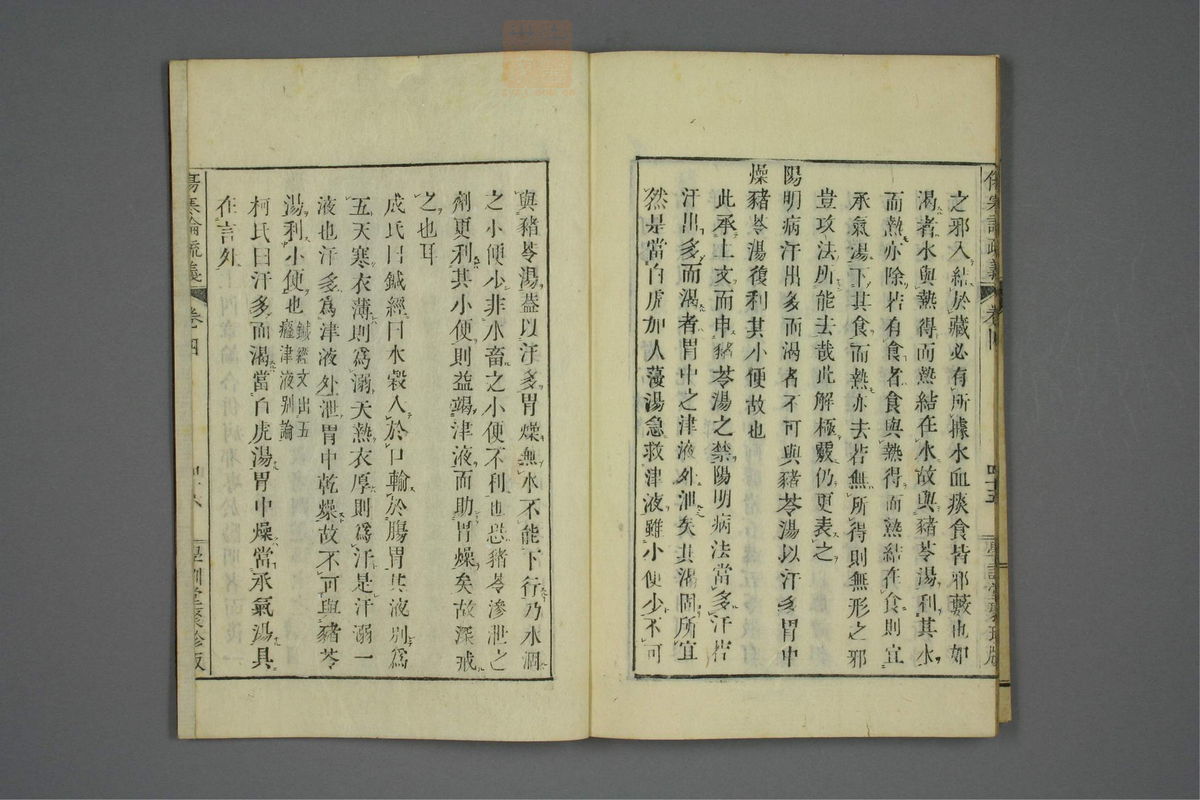 之邪入結於藏必有所據水血痰食皆邪藪也如
渴者水與熱得而熱結在水故與豬苓湯利其水
而熱亦除若有食者食與熱得而熱結在食則宜
承氣湯下其食而熱亦去若無所得則無形之邪
豈攻法所能去哉此解極覈仍更表之
陽明病汗出多而渴者不可與豬苓湯以汗多胃中
燥豬苓湯復利其小便故也
此承上文而申豬苓湯之禁陽明病法當多汗若
汗出多而渴者胃中之津液外泄矣其渴固所宜
然是當白虎加人葠湯急救津液雖小便少不可
與豬苓湯蓋以汗多胃燥無水不能下行乃水涸
之小便少非水畜之小便不利也恐豬苓滲泄之
劑更利其小便則益竭津液而助胃燥矣故深戒
之也耳
成氏曰鍼經曰水穀入於口輸於腸胃其液別為
五天寒衣薄則為溺天熱衣厚則為汗是汗溺一
液也汗多為津液外泄胃中乾燥故不可與豬苓
湯利小便也鍼經文出五
癃津液別論
柯氏曰汗多而渴當白虎湯胃中燥當承氣湯具
在言外
傷寒論疏義 卷四 四十六 學訓堂聚珍版